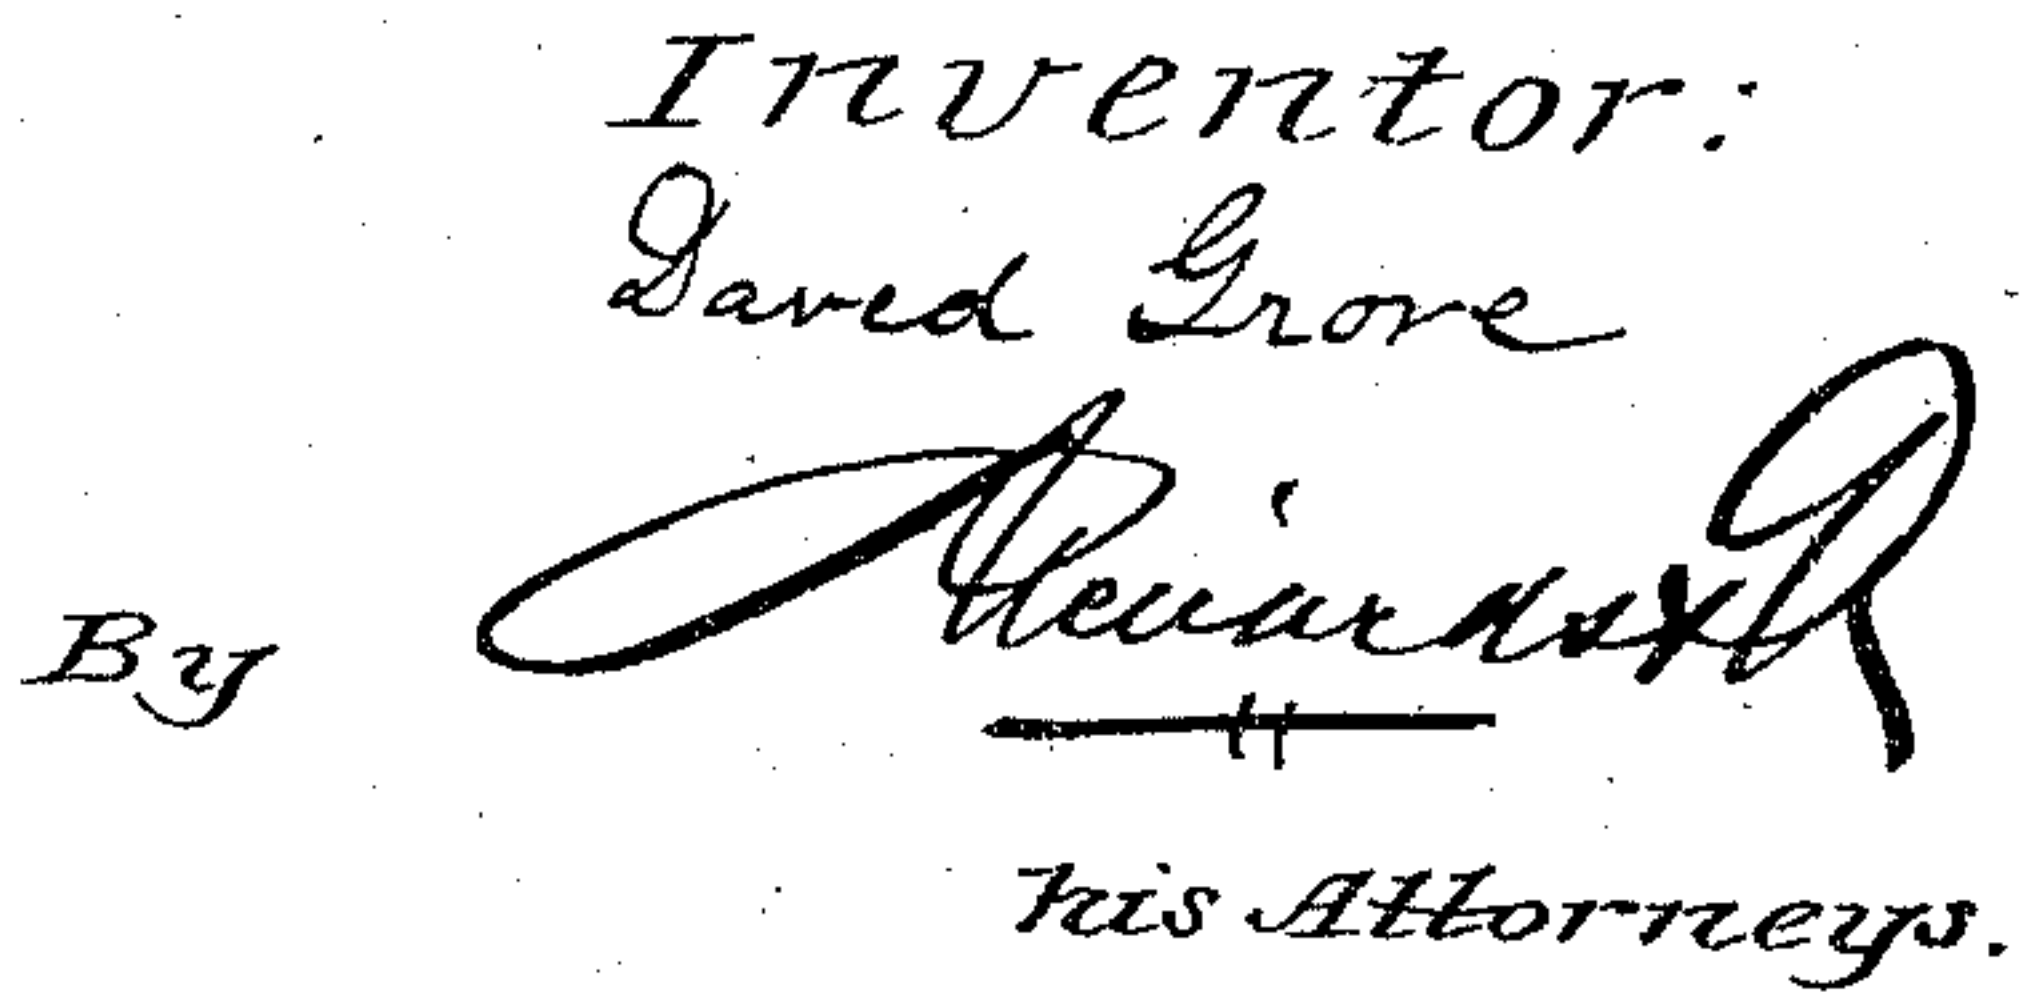 Inventor:
David Grove
By
his Attorneys.